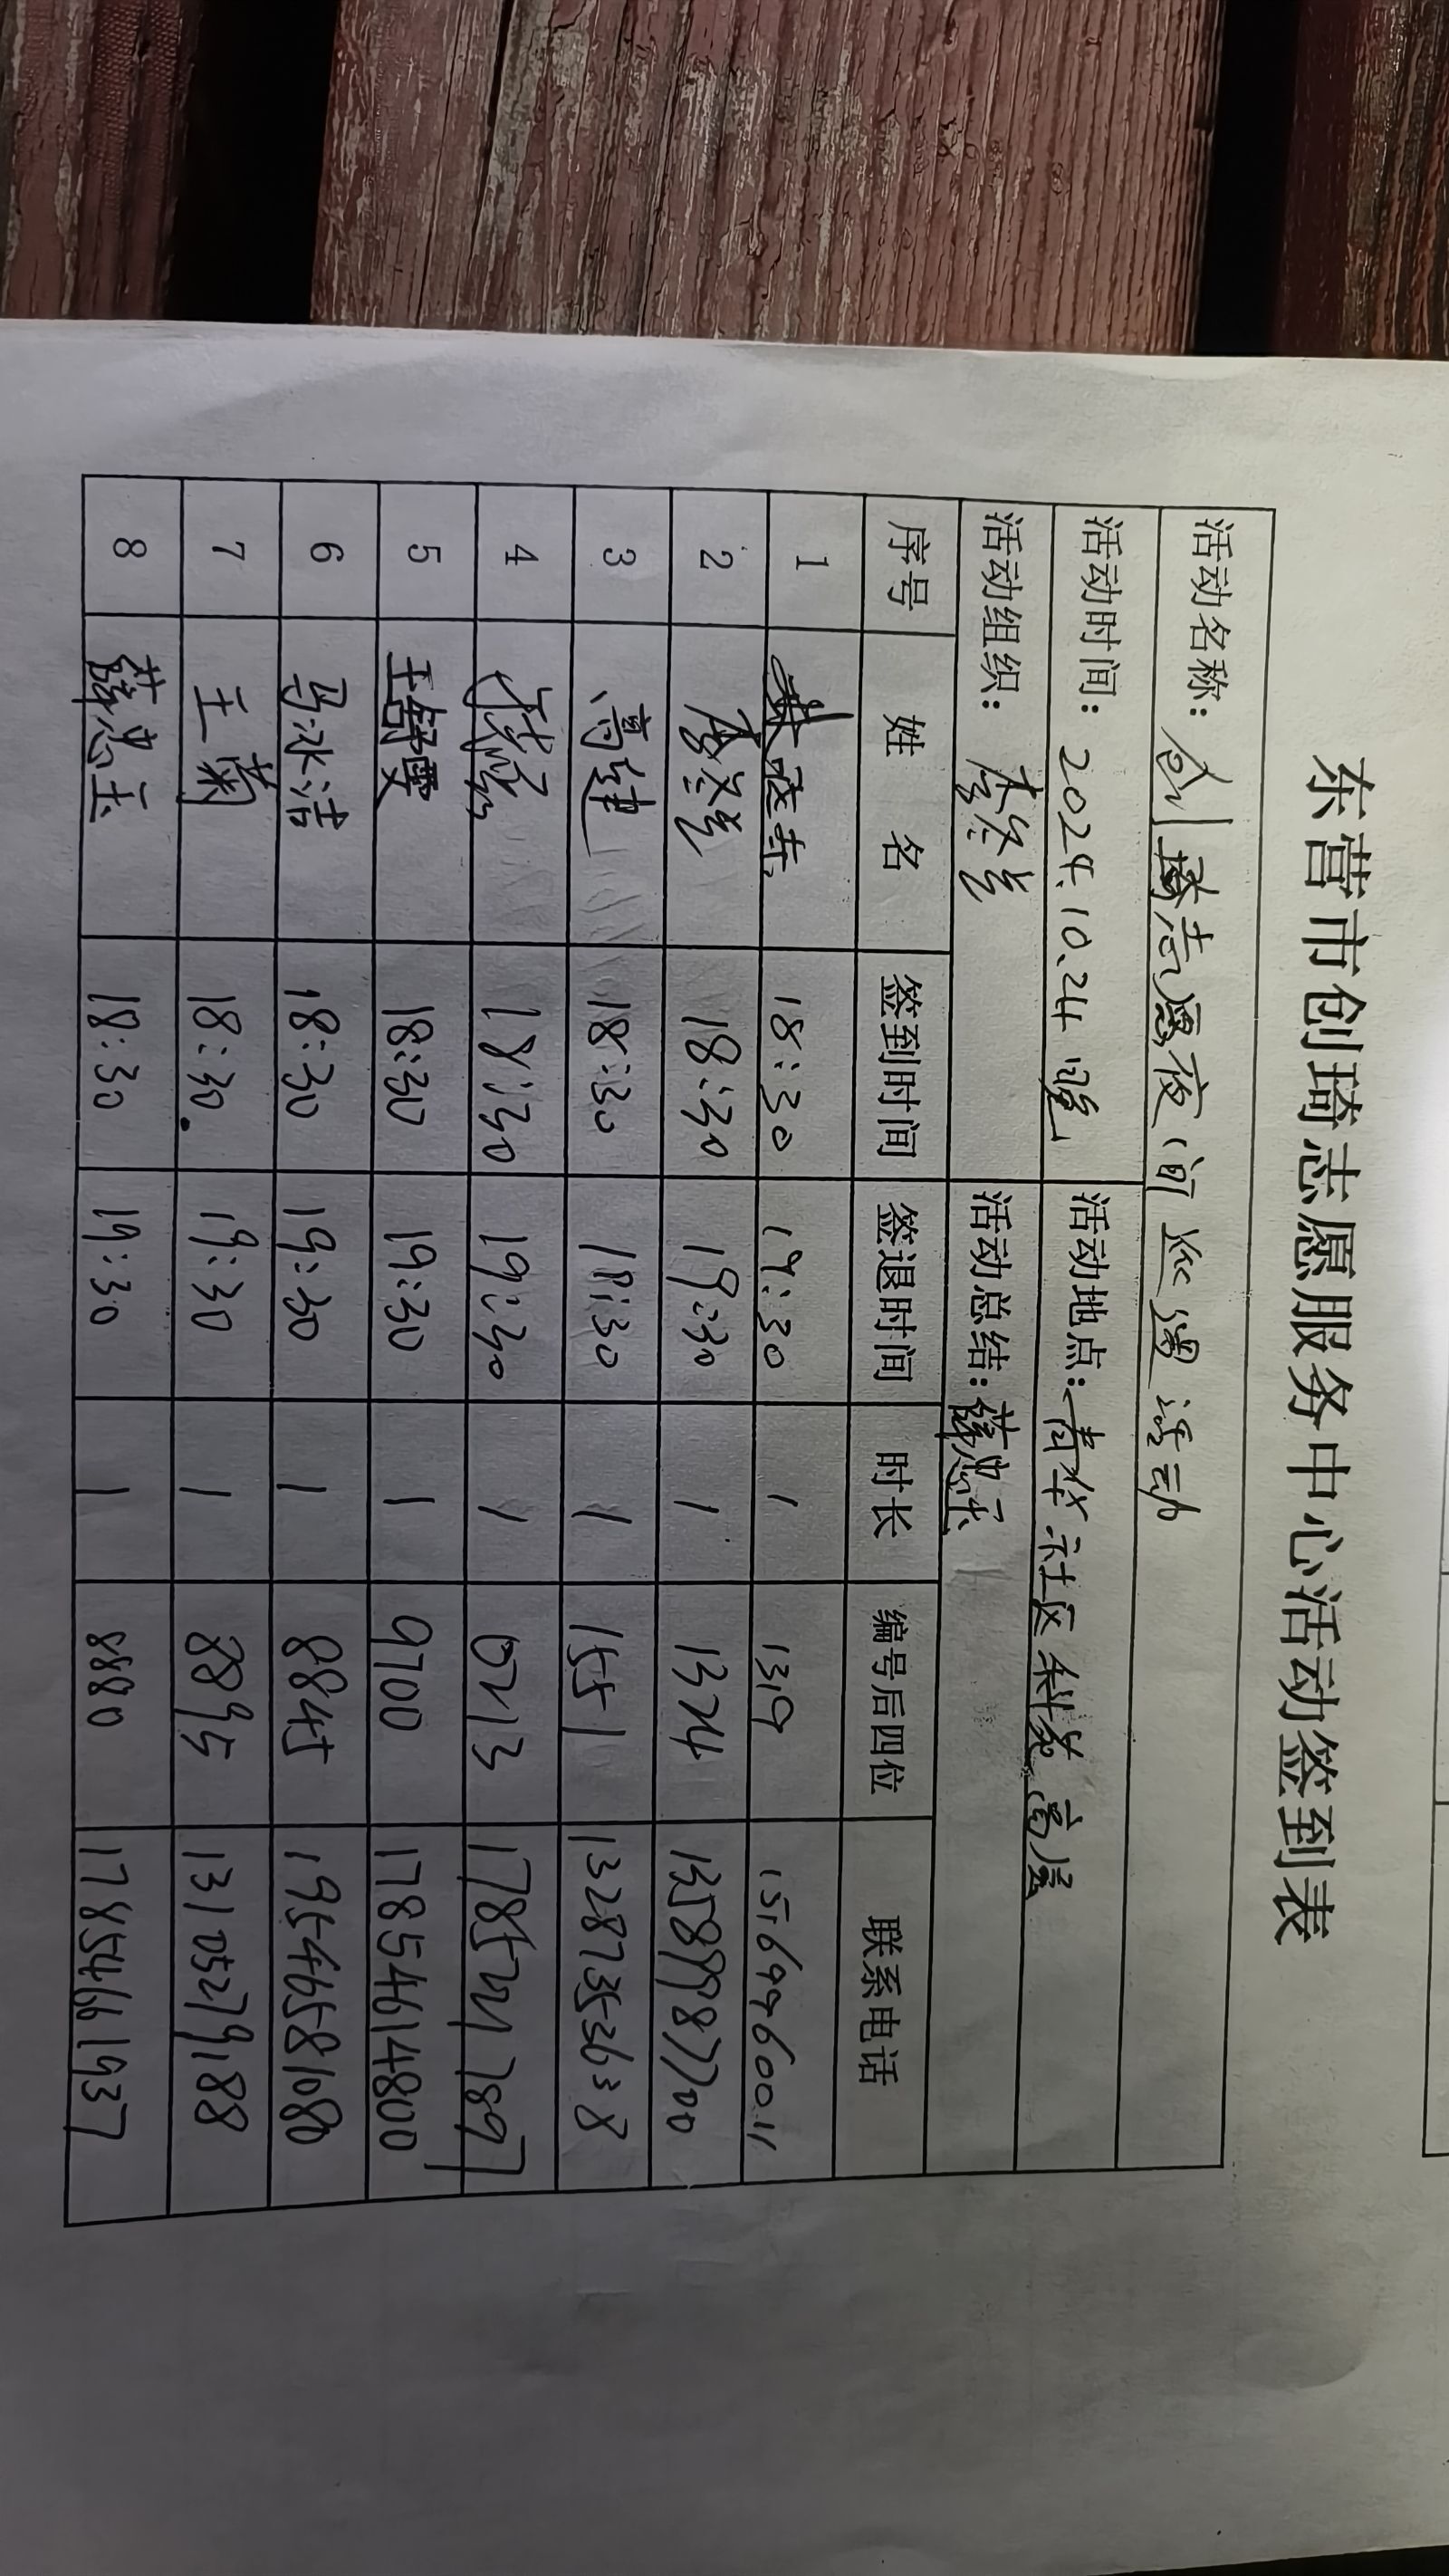 东营市创琦志愿服务中心活动签到表
活动名称：创琦志愿夜间巡逻活动
活动时间：2024.10.24 晚 活动地点：青华社区科苑高层
活动组织：李冬兰 活动总结：薛忠玉
序号 姓名 签到时间 签退时间 时长 编号后四位 联系电话
1 18:30 19:30 1 1319 15169960011
2 李冬兰 18:30 19:30 1 1324 13589987700
3 高建 18:30 19:30 1 1551 13287353638
4 18:30 19:30 1 0213 17857217897
5 王舒雯 18:30 19:30 1 9700 17854614800
6 马冰洁 18:30 19:30 1 8845 19546581080
7 王菊 18:30. 19:30 1 8895 13105279188
8 薛忠玉 18:30 19:30 1 8880 17854661937